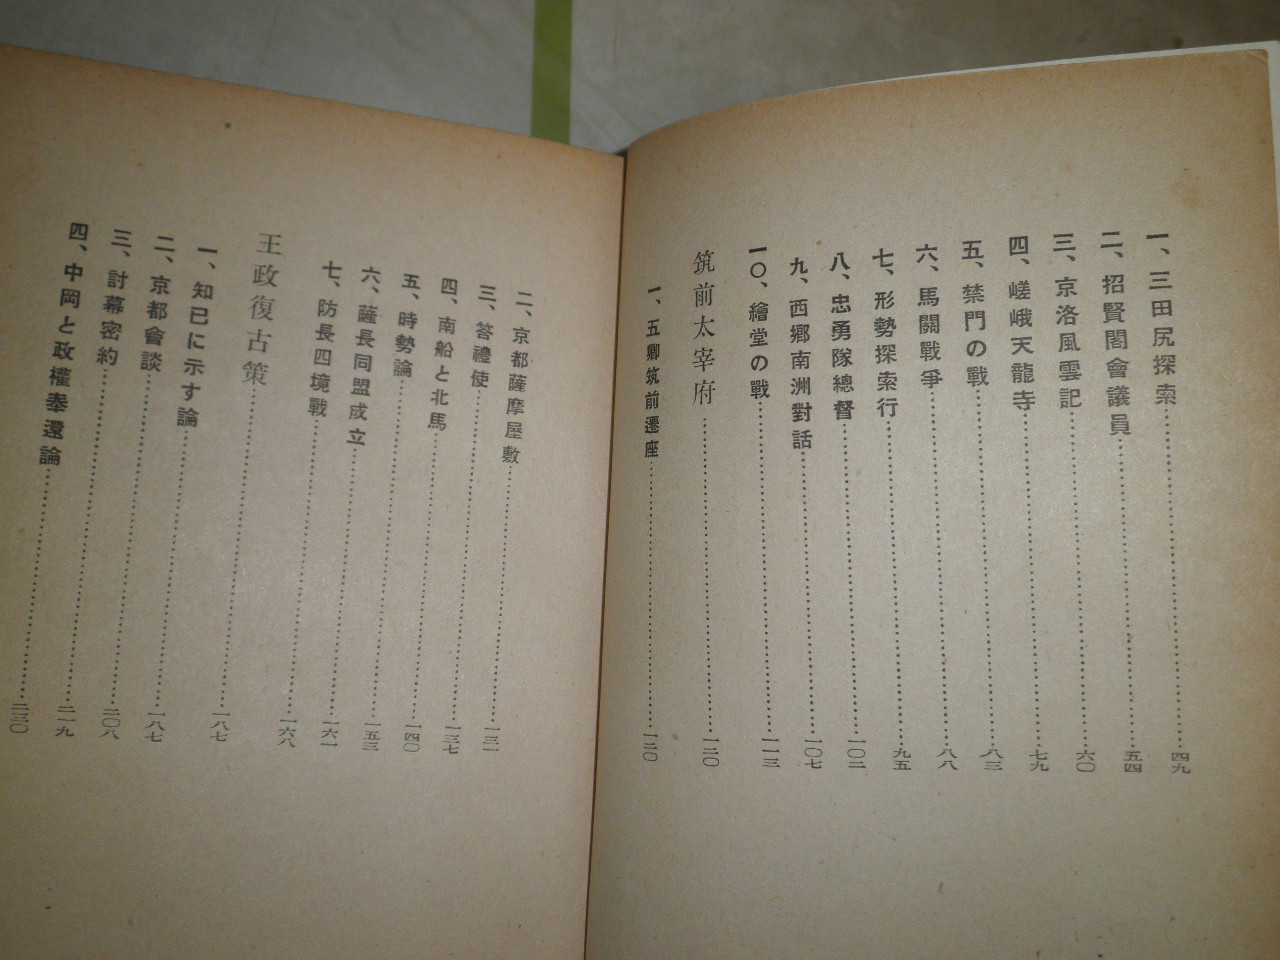 一、三田尻探索……四九
二、招賢閣會議員……五四
三、京洛風雲記……六〇
四、嵯峨天龍寺……七九
五、禁門の戰……八三
六、馬關戰爭……八八
七、形勢探索行……九五
八、忠勇隊總督……一〇二
九、西郷南洲對話……一〇七
一〇、繪堂の戰……一一三
筑前太宰府……一二〇
一、五卿筑前遷座……一二〇
二、京都薩摩屋敷……一三一
三、答禮使……一三七
四、南船と北馬……一四〇
五、時勢論……一五三
六、薩長同盟成立……一六一
七、防長四境戰……一六八
王政復古策……一八七
一、知己に示す論……一八七
二、京都會談……二〇八
三、討幕密約……二一九
四、中岡と政權奉還論……二三〇